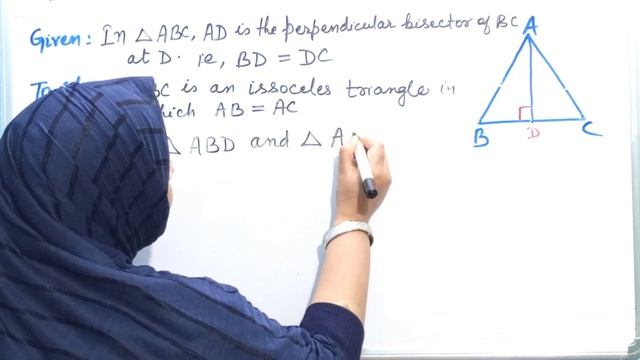 Given: In △ ABC, AD is the perpendicular bisector of BC
at D. ie, BD = DC
BC is an issoceles triangle in
which AB = AC
△ ABD and △ A
A
B
D
C